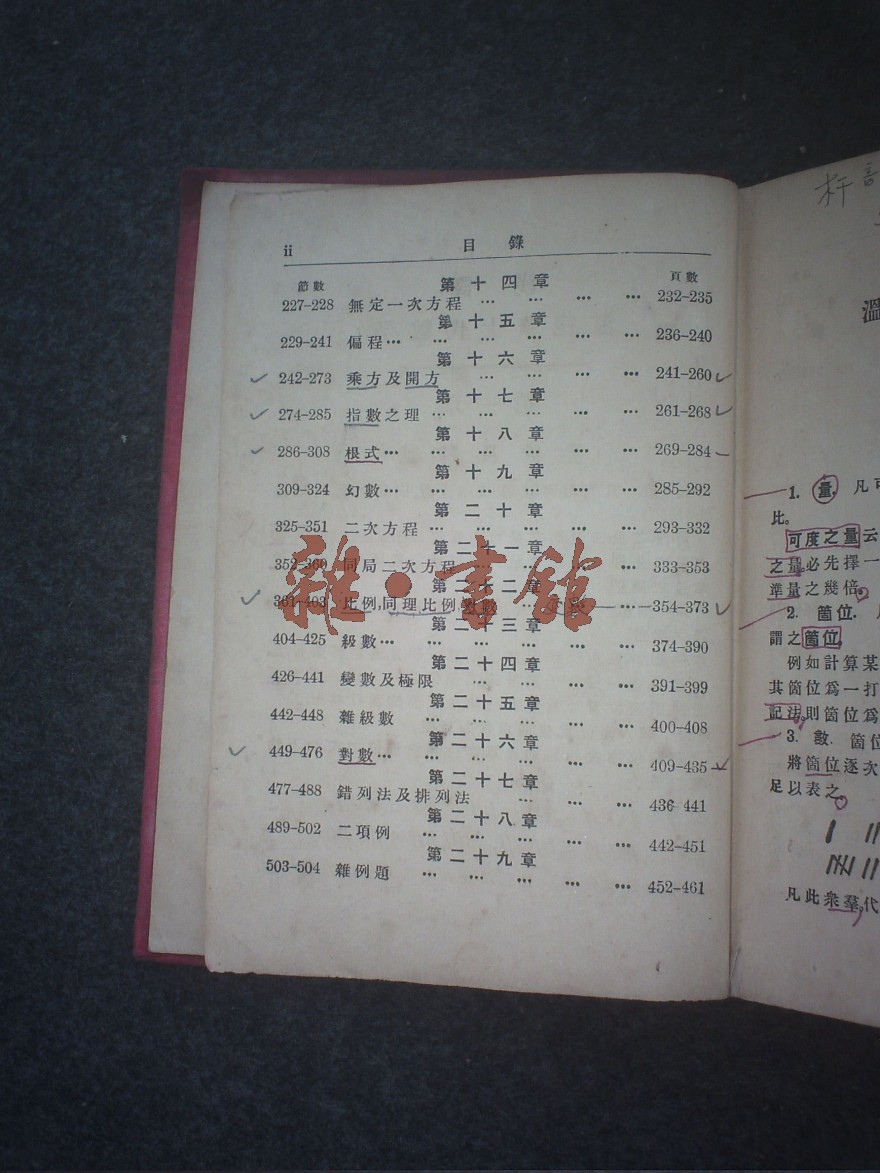 ii 目錄
節數 頁數
第十四章
227-228 無定一次方程 … … … … 232-235
第十五章
229-241 偏程… … … … … 236-240
第十六章
242-273 乘方及開方 … … … … 241-260
第十七章
274-285 指數之理 … … … … 261-268
第十八章
286-308 根式… … … … … 269-284
第十九章
309-324 幻數… … … … … 285-292
第二十章
325-351 二次方程 … … … … … 293-332
第二十一章
352-360 同局二次方程 … … … … 333-353
第二十二章
361-403 比例,同理比例, 354-373
第二十三章
404-425 級數… … … … … 374-390
第二十四章
426-441 變數及極限 … … … … 391-399
第二十五章
442-448 雜級數 … … … … … 400-408
第二十六章
449-476 對數… … … … … 409-435
第二十七章
477-488 錯列法及排列法 … … … 436-441
第二十八章
489-502 二項例 … … … … … 442-451
第二十九章
503-504 雜例題 … … … … … 452-461
雜·書館
溫
1. 量. 凡可
比。
可度之量云
之量。必先擇一
準量之幾倍。
2. 箇位.
謂之箇位
例如計算某
其箇位爲一打
記法,則箇位爲
3. 數. 箇位
將箇位逐次
足以表之。
凡此衆羣,代